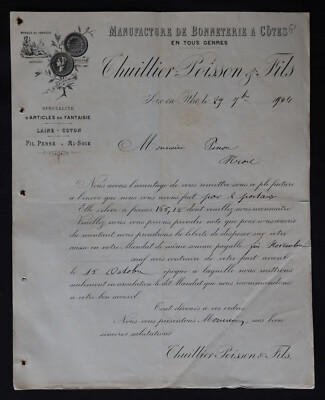 MANUFACTURE DE BONNETERIE A CÔTES
EN TOUS GENRES
Thuillier-Poisson & Fils
le 29 7bre 1904
SPÉCIALITÉ
D'ARTICLES DE FANTAISIE
LAINE - COTON
FIL PERSE - MI-SOIE
Monsieur
Nous avons l'avantage de vous remettre sous ce pli facture
à l'envoi que nous vous avons fait par
Elle s'élève à francs 155,15 dont veuillez nous reconnaître
Veuillez, sans vous prévenir prendre note que pour nous couvrir
du montant nous prendrons la liberté de disposer sur votre
caisse en notre Mandat de même somme payable fin Novembre
sauf avis contraire de votre part avant
le 15 Octobre époque à laquelle nous mettrons
seulement en circulation le dit Mandat que nous recommandons
à votre bon accueil.
Tout dévoués à vos ordres
Nous vous présentons Monsieur, nos bien
sincères salutations
Thuillier-Poisson & Fils.